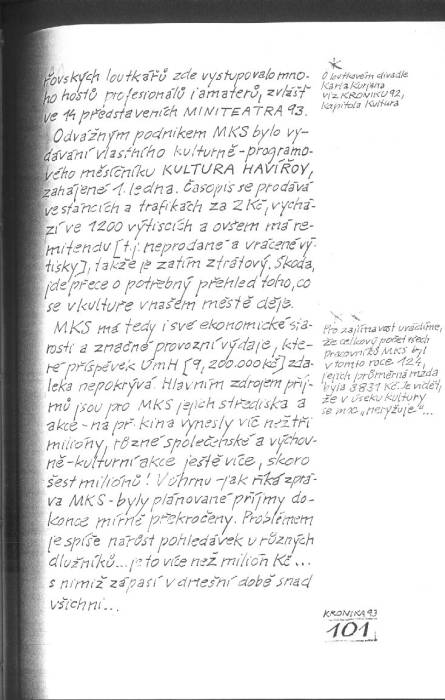 řovských loutkářů zde vystupovalo mno-
ho hostů profesionálů i amatérů, zvlášť
ve 14 představeních MINITEATRA 93.
Odvážným podnikem MKS bylo vy-
dávání vlastního kulturně-programo-
vého měsíčníku KULTURA HAVÍŘOV,
zahájené 1. ledna. Časopis se prodává
ve stáncích a trafikách za 2 Kč, vychá-
zí ve 1200 výtiscích a ovšem má re-
mitendu [t.j. neprodané a vrácené vý-
tisky], takže je zatím ztrátový. Škoda,
jde přece o potřebný přehled toho, co
se v kultuře v našem městě děje.
MKS má tedy i své ekonomické sta-
rosti a značné provozní výdaje, kte-
ré příspěvek ÚmH [9,200.000 Kč] zda-
leka nepokrývá. Hlavním zdrojem příj-
mů jsou pro MKS jejich střediska a
akce - na př. kina vynesly víc než tři
milióny, různé společenské a výchov-
ně-kulturní akce ještě více, skoro
šest miliónů! V úhrnu - jak říká zprá-
va MKS - byly plánované příjmy do-
konce mírně překročeny. Problémem
je spíše narůst pohledávek u různých
dlužníků... je to více než milión Kč...
s nimiž zápasí v dnešní době snad
všichni...
*
O loutkovém divadle
Karla Kurjana
viz KRONIKU 92,
kapitola Kultura
*
Pro zajímavost uvádíme,
že celkový počet všech
pracovníků MKS byl
v tomto roce 124,
jejich průměrná mzda
byla 3831 Kč. Je vidět,
že v úseku kultury
se moc „neryžuje"...
KRONIKA 93
101